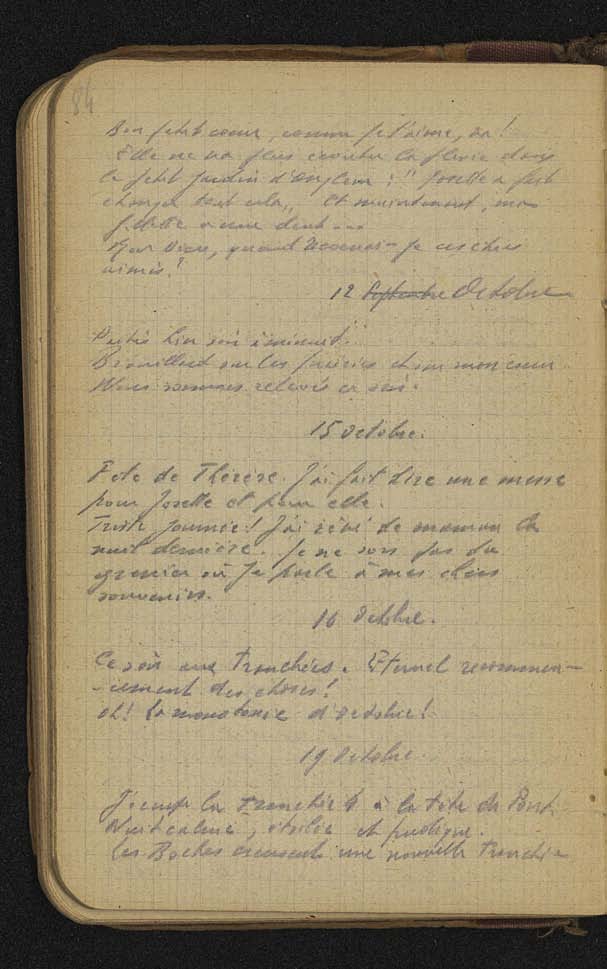 84
Bon petit coeur, comme je t'aime, va!
Elle ne va plus écouter la pluie dans
le petit jardin d' : " Josette a fait
changer tout cela,, Et maintenant, ma
fillette a une dent...
Mon Dieu, quand reverrai-je ces chers
aimés?
12 Septembre Octobre
Partis hier soir à minuit.
Brouillard sur les prairies et sur mon coeur
Nous sommes relevés ce soir.
15 Octobre.
Fête de Thérèse. J'ai fait dire une messe
pour Josette et pour elle.
Triste journée! J'ai rêvé de maman la
nuit dernière. Je ne sors pas du
grenier où je parle à mes chers
souvenirs.
16 Octobre.
Ce soir aux tranchées. Eternel recommen-
-cement des choses!
oh! la monotonie d'octobre!
19 Octobre.
J'occupe la tranchée 4 à la tête de Pont.
Nuit calme, étoilée et
Les Boches creusent une nouvelle tranchée